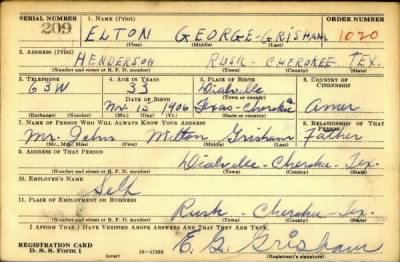 SERIAL NUMBER 1. NAME (Print) ORDER NUMBER
209 ELTON GEORGE-GRISHAM 1020
(First) (Middle) (Last)
2. ADDRESS (Print)
HENDERSON RUSK-CHEROKEE TEX.
(Number and street or R. F. D. number) (Town) (County) (State)
3. TELEPHONE 4. AGE IN YEARS 5. PLACE OF BIRTH 6. COUNTRY OF CITIZENSHIP
63W 33 Dialville
DATE OF BIRTH (Town or county)
15 1906 Texas-Cherokee Amer
(Mo.) (Day) (Yr.) (State or country)
7. NAME OF PERSON WHO WILL ALWAYS KNOW YOUR ADDRESS 8. RELATIONSHIP OF THAT PERSON
Mr. John Milton Grisham Father
(Mr., Mrs., Miss) (First) (Middle) (Last)
9. ADDRESS OF THAT PERSON
Dialville-Cherokee-Tex.
(Number and street or R. F. D. number) (Town) (County) (State)
10. EMPLOYER'S NAME
Self
11. PLACE OF EMPLOYMENT OR BUSINESS
Rusk-Cherokee-Tex.
(Number and street or R. F. D. number) (Town) (County) (State)
I AFFIRM THAT I HAVE VERIFIED ABOVE ANSWERS AND THAT THEY ARE TRUE.
REGISTRATION CARD E. G. Grisham
D. S. S. Form 1 (over) (Registrant's signature)